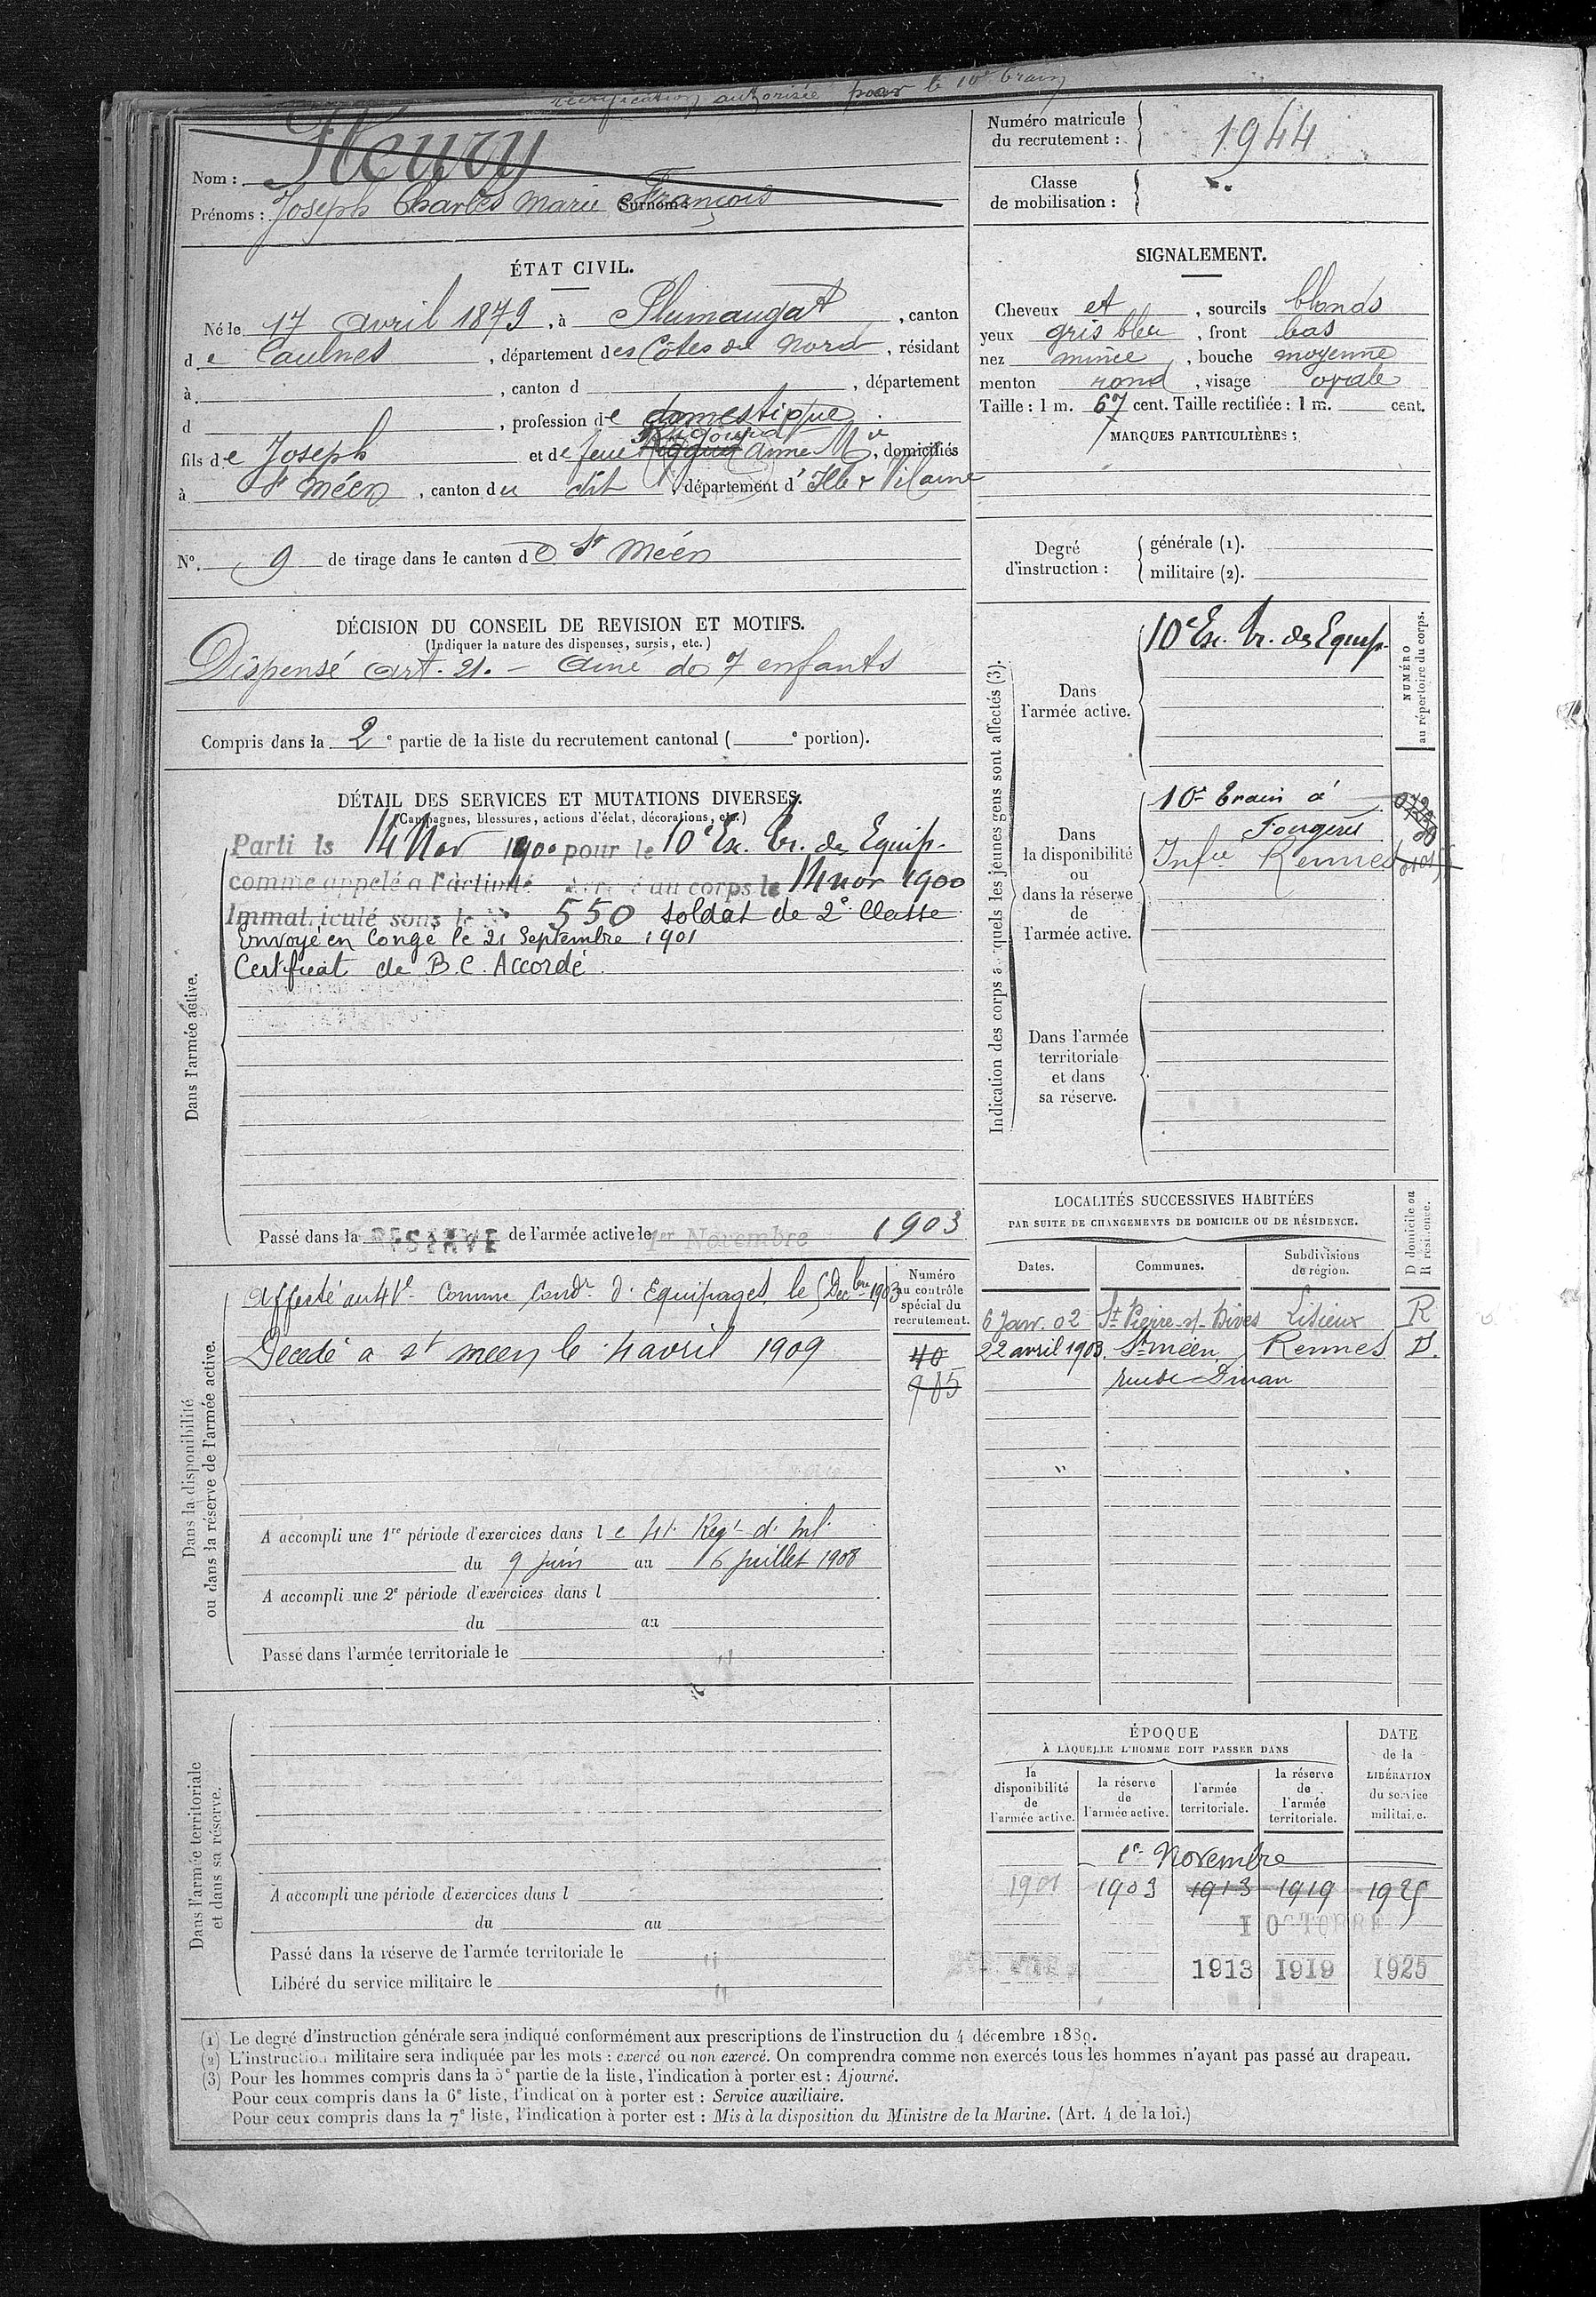 rectification autorisée pour le 10e train
Nom : Fleury
Prénoms : Joseph Charles Marie François Surnoms
Numéro matricule du recrutement : 1944
Classe de mobilisation :
ÉTAT CIVIL.
Né le 17 avril 1879, à Plumaugat, canton
de Caulnes, département des Côtes du Nord, résidant
à , canton d , département
d , profession de domestique
fils de Joseph et de feue Anne Mie, domiciliés
à St Méen, canton du dit, département d'Ille & Vilaine
N° 9 de tirage dans le canton de St Méen
SIGNALEMENT.
Cheveux et , sourcils blonds
yeux gris bleu , front bas
nez mince , bouche moyenne
menton rond , visage ovale
Taille : 1 m. 67 cent. Taille rectifiée : 1 m. cent.
MARQUES PARTICULIÈRES :
Degré d'instruction : générale (1).
militaire (2).
DÉCISION DU CONSEIL DE REVISION ET MOTIFS.
(Indiquer la nature des dispenses, sursis, etc.)
Dispensé art. 21. - ainé de 7 enfants
Compris dans la 2e partie de la liste du recrutement cantonal ( e portion).
DÉTAIL DES SERVICES ET MUTATIONS DIVERSES.
(Campagnes, blessures, actions d'éclat, décorations, etc.)
Dans l'armée active.
Parti le 14 Nov 1900 pour le 10e Esc. tr. des Equip.
comme appelé à l'activité Arrivé au corps le 14 nov 1900
Immatriculé sous le N° 550 soldat de 2e Classe
Envoyé en Congé le 21 Septembre 1901
Certificat de B.C. Accordé.
Passé dans la RESERVE de l'armée active le 1er Novembre 1903
Indication des corps auxquels les jeunes gens sont affectés (3).
NUMÉRO au répertoire du corps.
Dans l'armée active.
10e Esc. tr. des Equip.
Dans la disponibilité ou dans la réserve de l'armée active.
10e train à
Fougères
Infie Rennes
Dans l'armée territoriale et dans sa réserve.
Dans la disponibilité ou dans la réserve de l'armée active.
Affecté au 41e Comme Condr d'Equipages le 5 Decbre 1903
Décédé à St Meen le 4 avril 1909
Numéro au contrôle spécial du recrutement.
40
985
A accompli une 1re période d'exercices dans le 41e Regt d'Inf.
du 9 juin au 6 juillet 1908
A accompli une 2e période d'exercices dans l
du au
Passé dans l'armée territoriale le
LOCALITÉS SUCCESSIVES HABITÉES
PAR SUITE DE CHANGEMENTS DE DOMICILE OU DE RÉSIDENCE.
D domicile ou R résidence.
Dates. Communes. Subdivisions de région.
6 Janv. 02 St Pierre-s/-Dives Lisieux R
22 avril 1903. St méen Rennes D.
rue de Dinan
Dans l'armée territoriale et dans sa réserve.
A accompli une période d'exercices dans l
du au
Passé dans la réserve de l'armée territoriale le
Libéré du service militaire le
ÉPOQUE
À LAQUELLE L'HOMME DOIT PASSER DANS
DATE de la LIBÉRATION du service militaire.
la disponibilité de l'armée active.
la réserve de l'armée active.
l'armée territoriale.
la réserve de l'armée territoriale.
1er Novembre
1901 1903 1913 1919 1925
I OCTOBRE
1913 1919 1925
(1) Le degré d'instruction générale sera indiqué conformément aux prescriptions de l'instruction du 4 décembre 1889.
(2) L'instruction militaire sera indiquée par les mots : exercé ou non exercé. On comprendra comme non exercés tous les hommes n'ayant pas passé au drapeau.
(3) Pour les hommes compris dans la 5e partie de la liste, l'indication à porter est : Ajourné.
Pour ceux compris dans la 6e liste, l'indication à porter est : Service auxiliaire.
Pour ceux compris dans la 7e liste, l'indication à porter est : Mis à la disposition du Ministre de la Marine. (Art. 4 de la loi.)